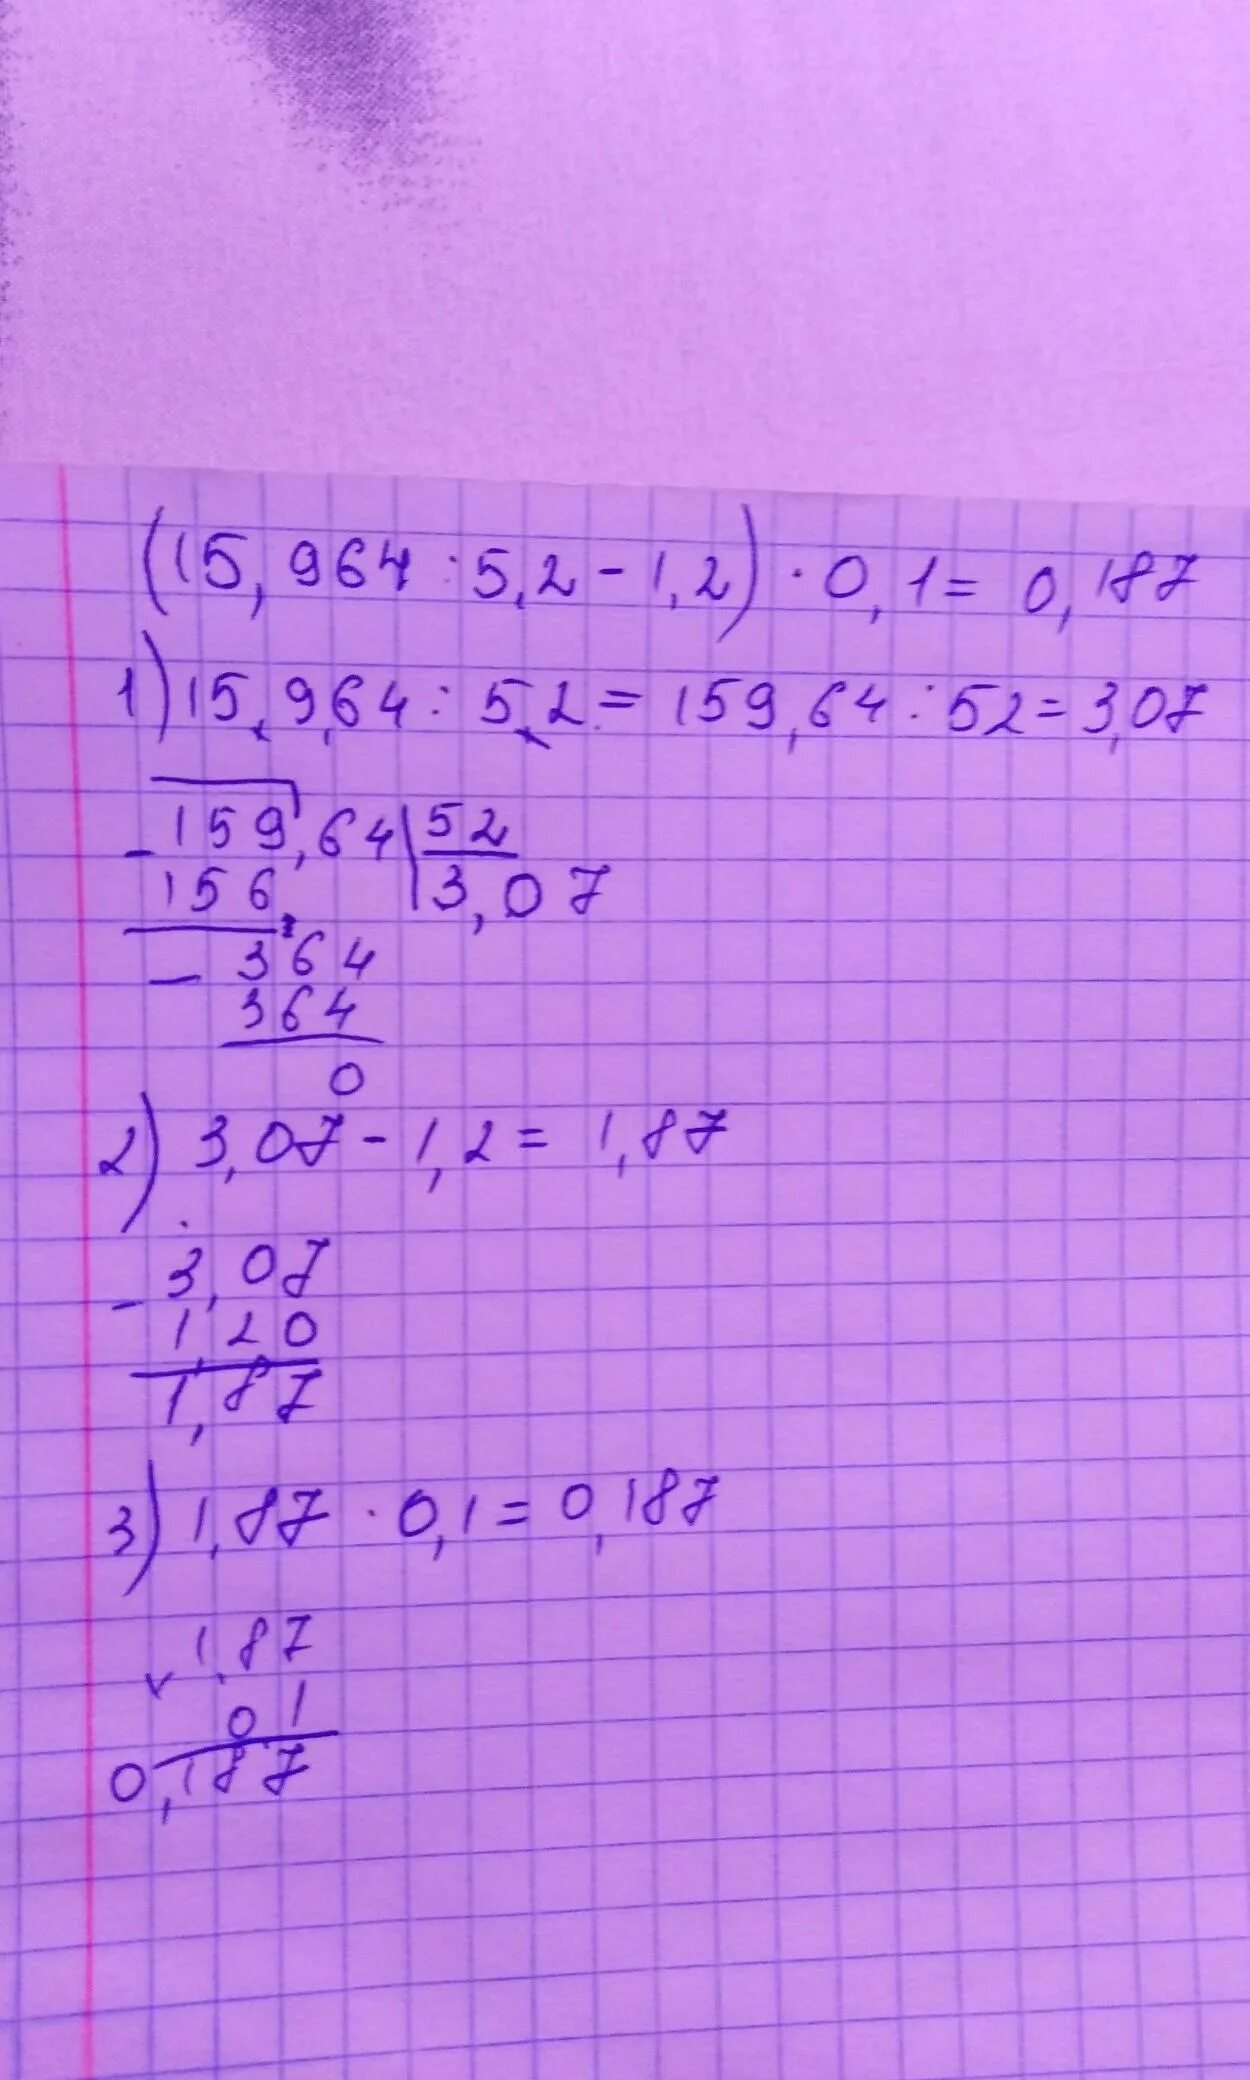 (15,964:5,2-1,2)·0,1=0,187
1) 15,9,64:5,2=159,64:52=3,07
-159,64|52
156, |3,07
- 364
364
0
2) 3,07-1,2=1,87
- 3,07
1,20
1,87
3) 1,87·0,1=0,187
1,87
×
0 1
0,187